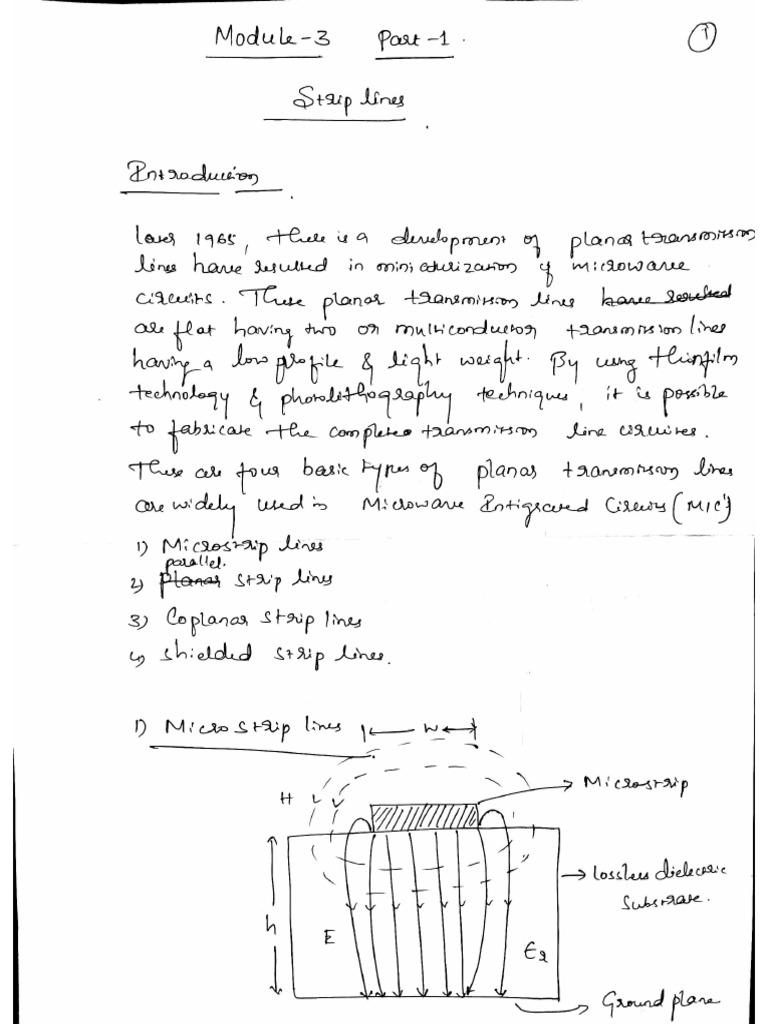 Module-3 Part-1.
1
Strip lines
Introduction
Later 1965, there is a development of planar transmission
lines have resulted in miniaturization of microwave
circuits. These planar transmission lines have resulted
are flat having two or multiconductor transmission lines
having a low profile & light weight. By using thinfilm
technology & photolithography techniques, it is possible
to fabricate the complete transmission line circuits.
There are four basic types of planar transmission lines
are widely used in Microwave Intigrated Circuits (MIC's)
1) Microstrip lines
parallel.
2) Planar strip lines
3) Coplanar strip lines
4) Shielded strip lines.
1) Microstrip lines
W
H
Microstrip
Lossless dielectric
substrate.
h
E
Er
Ground plane